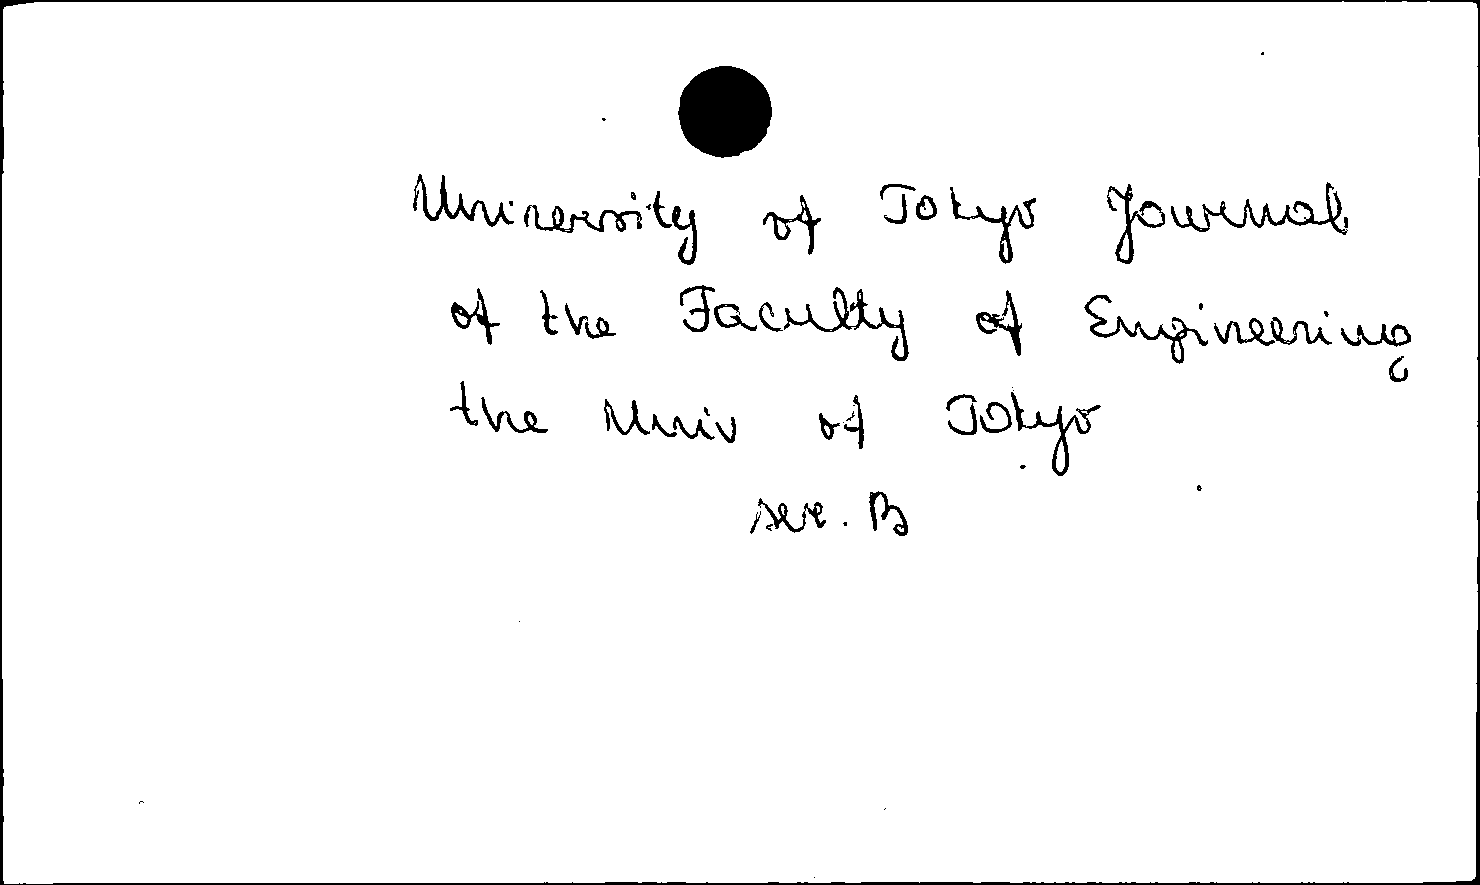 University of Tokyo Journal
of the Faculty of Engineering
the Univ of Tokyo
ser. B